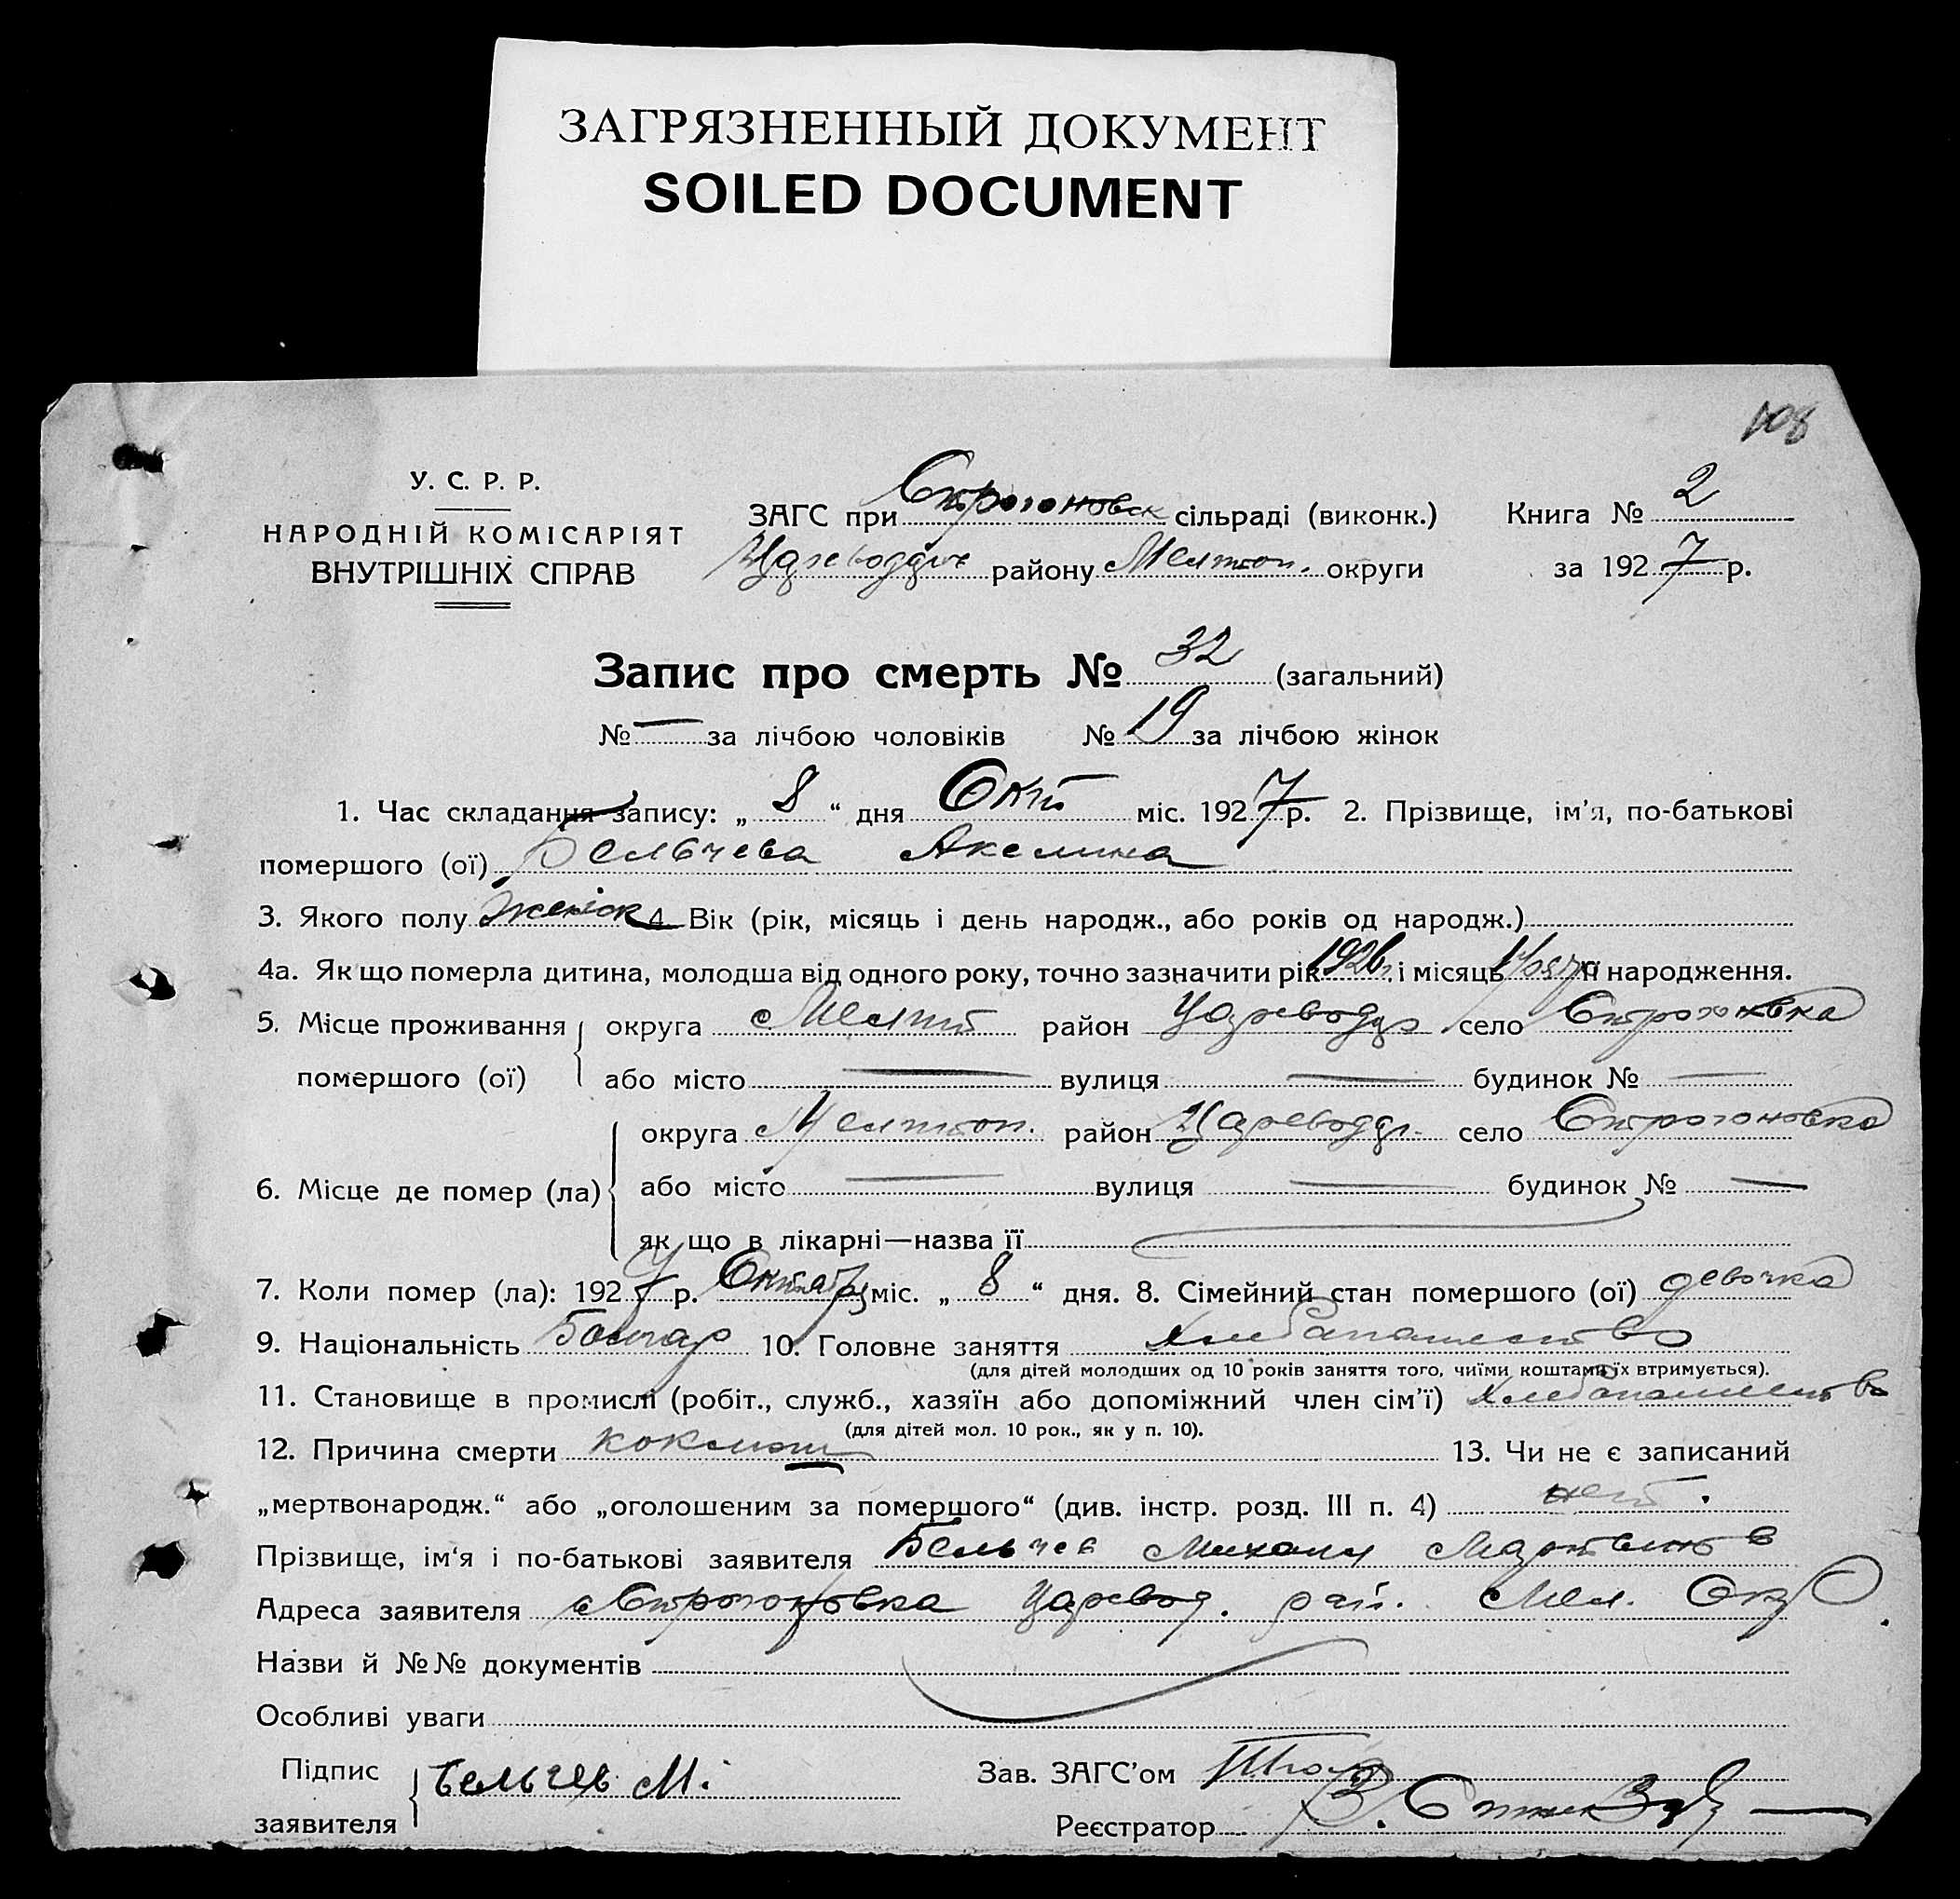 ЗАГРЯЗНЕННЫЙ ДОКУМЕНТ
SOILED DOCUMENT
108
У. С. Р. Р.
НАРОДНІЙ КОМІСАРІЯТ
ВНУТРІШНІХ СПРАВ
ЗАГС при Строгоновск сільраді (виконк.)
районy Мелітоп. округи
Книга № 2
за 1927 р.
Запис про смерть № 32 (загальний)
№ — за лічбою чоловіків № 19 за лічбою жінок
1. Час складання запису: „ 8 “ дня Окт міс. 1927 р. 2. Прізвище, ім'я, по-батькові
помершого (ої) Бельчева Акелина
3. Якого полу 4. Вік (рік, місяць і день народж., або років од народж.)
4а. Як що померла дитина, молодша від одного року, точно зазначити рік 1926 і місяць її народження.
5. Місце проживання помершого (ої) округа Мелит район Царевод село Строгоновка
або місто — вулиця — будинок № —
6. Місце де помер (ла) округа Мелитоп. район Царевод село Строгоновка
або місто — вулиця — будинок № —
як що в лікарні—назва її
7. Коли помер (ла): 1927 р. Октябр міс. „ 8 “ дня. 8. Сімейний стан помершого (ої) девочка
9. Національність Болгар 10. Головне заняття
(для дітей молодших од 10 років заняття того, чиїми коштами їх втримується).
11. Становище в промислі (робіт., служб., хазяїн або допоміжний член сім'ї)
(для дітей мол. 10 рок., як у п. 10).
12. Причина смерти коклюш 13. Чи не є записаний
„мертвонародж.“ або „оголошеним за помершого“ (див. інстр. розд. III п. 4) нет.
Прізвище, ім'я і по-батькові заявителя Бельчев Михаил
Адреса заявителя с Строгоновка Царевод. рай. Мел. Окр.
Назви й №№ документів
Особливі уваги
Підпис заявителя Бельчев М.
Зав. ЗАГС'ом
Реєстратор